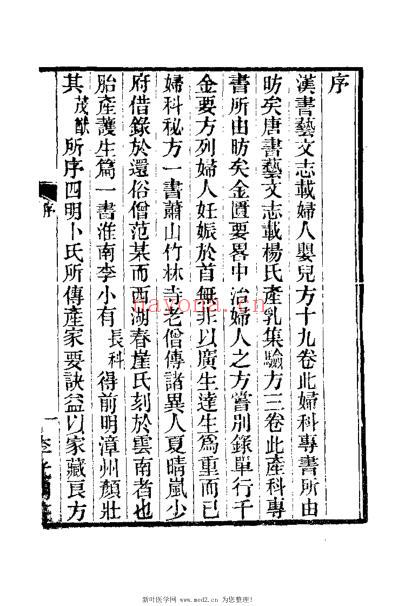 序
漢書藝文志載婦人嬰兒方十九卷此婦科專書所由
昉矣唐書藝文志載楊氏產乳集驗方三卷此產科專
書所由昉矣金匱要畧中治婦人之方嘗別錄單行千
金要方列婦人妊娠於首無非以廣生達生為重而已
婦科秘方一書蕭山竹林寺老僧傳諸異人夏晴嵐少
府借錄於還俗僧范某而西湖春崖氏刻於雲南者也
胎產護生篇一書淮南李小有長科得前明漳州顏壯
其茂猷所序四明卜氏所傳產家要訣益以家藏良方
序
一
hayona.cn
新叶医学网 www.med2.cn 为您整理!